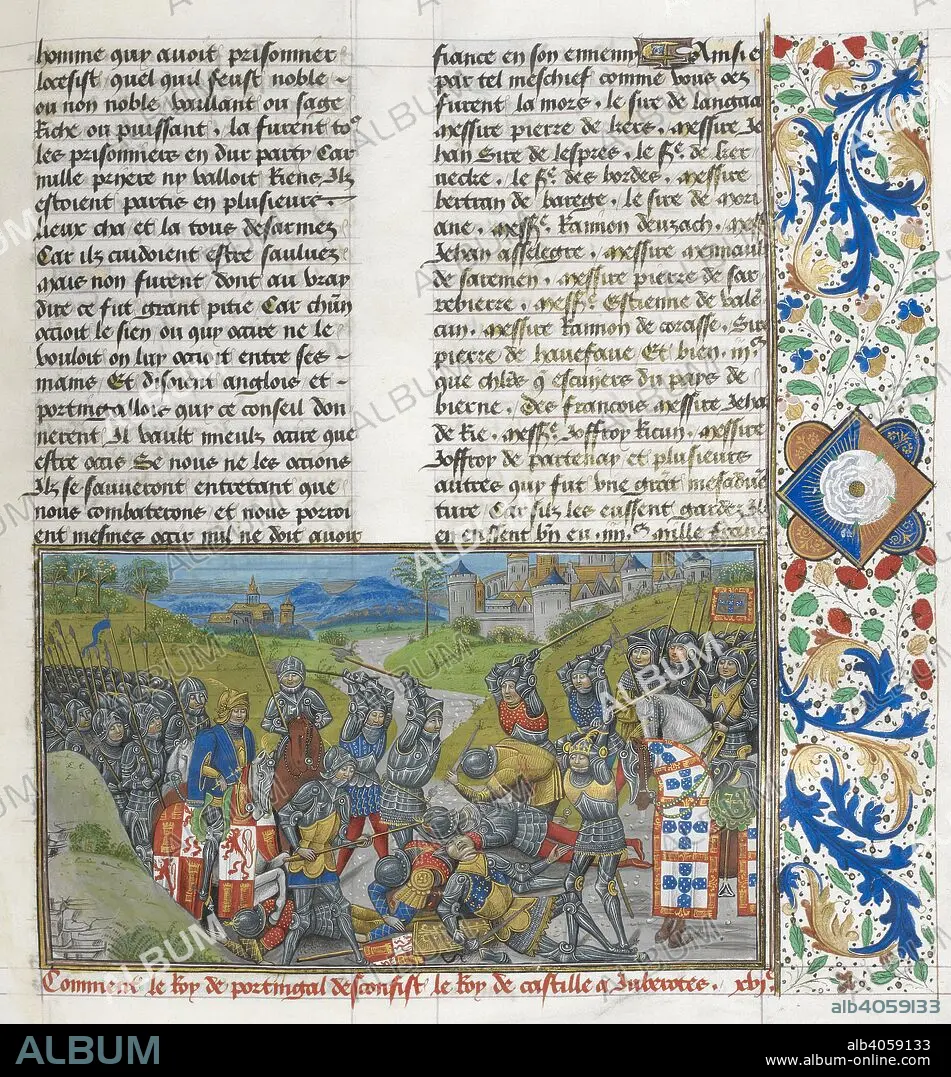 homme quy auoit prisonnier
locesist quel quil feust noble
ou non noble vaillant ou sage
Riche ou puissant . la furent to9
les prisonniers en dur party Car
nulle pryere ny valloit Riens Ilz
estoient partis en plusieurs
lieux cha et la tous desarmez
Car ilz cuidoient estre sauluez
mais non furent dont au vray
dire ce fut grant pitie Car chun
occioit le sien ou quy occire ne le
vouloit on luy occioit entre ses
mains Et disoient anglois et
portingallois quy ce conseil don
nerent Il vault mieulz occire que
estre occis Se nous ne les occions
Ilz se sauueront entretant que
nous combaterons et nous porroi
ent mesmes occir nul ne doit auoir
fiance en son ennemy Ainsi
par tel meschief comme vous oez
furent la mors . le sire de
messire pierre de kers . messire Je
han Sire de lespres . le sr. de ker
necke . le sr. des bordes . messire
bertran de barege . le sire de mori
ane . messe. Raimon deuzach .
Jehan asselegre . messire
de saremen . messire pierre de sar
rebierre . messe. Estienne de vale
cin . messire Raimon de corasse . Sire
pierre de hauefane Et bien . iiic
que chlrs q escuiers du pays de
bierne . des francois messire Jeha
de Rie . messe. Joffroy Ricun . messire
Joffroy de partenay et plusieurs
autres quy fut vne grat mesaduē
ture Car silz les eussent gardez Ilz
en eussent bn eu . iiiic mille francz
Comment le Roy de portingal desconfist le Roy de castille a Juberotes . xvje.
ALBUM
alb4059133
ALBUM
alb4059133
www.album-online.com